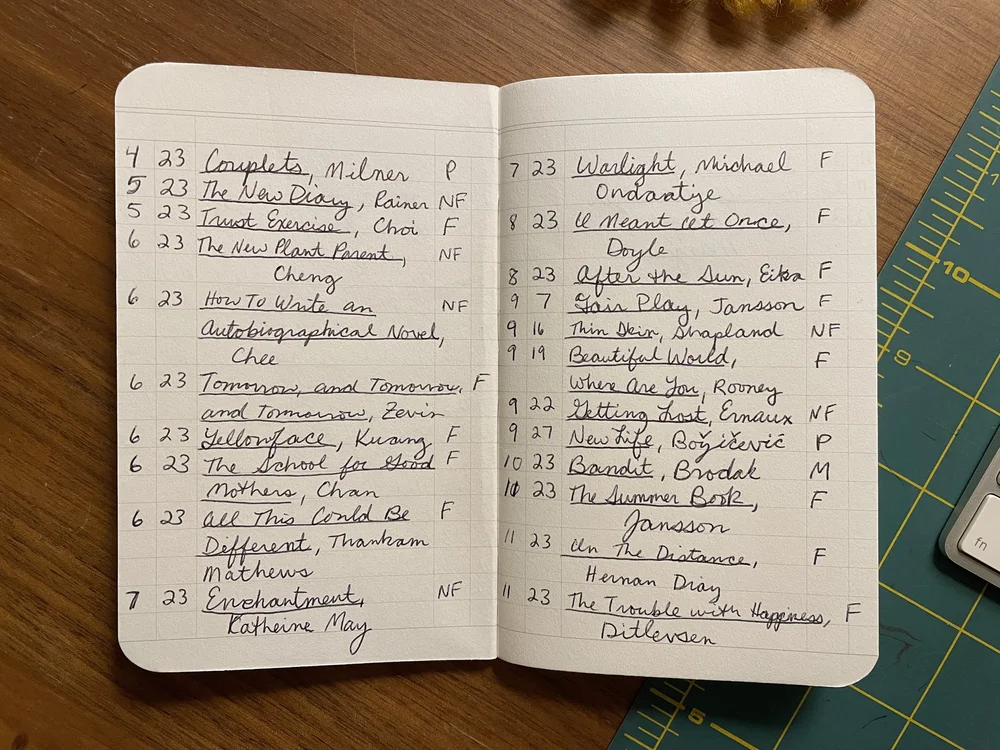 4 23 Couplets, Milner P
5 23 The New Diary, Rainer NF
5 23 Trust Exercise, Choi F
6 23 The New Plant Parent, NF
Cheng
6 23 How To Write an NF
Autobiographical Novel,
Chee
6 23 Tomorrow, and Tomorrow, F
and Tomorrow, Zevin
6 23 Yellowface, Kuang F
6 23 The School for Good F
Mothers, Chan
6 23 All This Could Be F
Different, Thankam
Mathews
7 23 Enchantment, NF
Katheine May
7 23 Warlight, Michael F
Ondaatije
8 23 U Meant It Once, F
Doyle
8 23 After the Sun, Eika F
9 7 Fair Play, Jansson F
9 16 Thin Skin, Shapland NF
9 19 Beautiful World, F
Where Are You, Rooney
9 22 Getting Lost, Ernaux NF
9 27 New Life, Božičević P
10 23 Bandit, Brodak M
10 23 The Summer Book, F
Jansson
11 23 In The Distance, F
Hernan Diaz
11 23 The Trouble with Happiness, F
Ditlevsen
10
9
5
fn